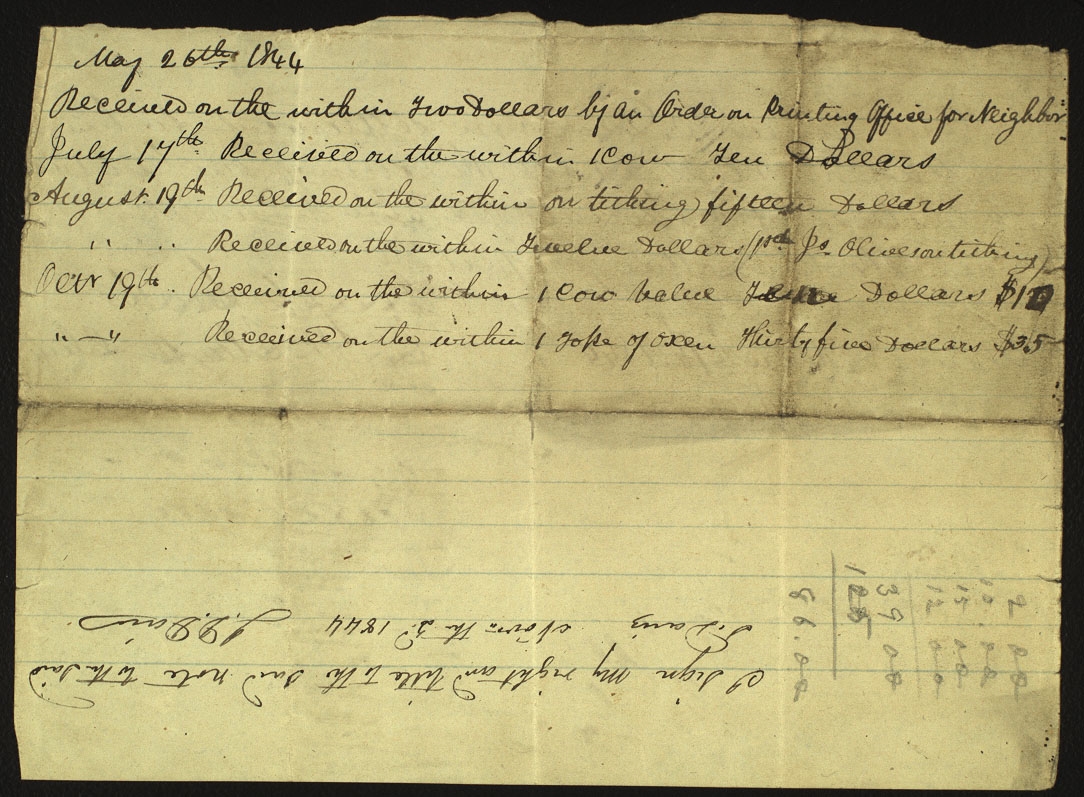 May 26th 1844
Received on the within Two Dollars by an Order on Printing Office for Neighbor
July 17th Received on the within 1 Cow Ten Dollars
August 19th Received on the within on tithing fifteen Dollars
" " Received on the within Twelve Dollars (pd Js. Olive on tithing)
Octr 19th Received on the within 1 Cow Value Dollars $12
" — " Received on the within 1 Yoke of Oxen Thirty five Dollars $35
I sign My right and title to the Said note to the Said
Davis Novr. the 2d 1844 Davis
2 00
10.00
15.00
12 00
39 00
86.00